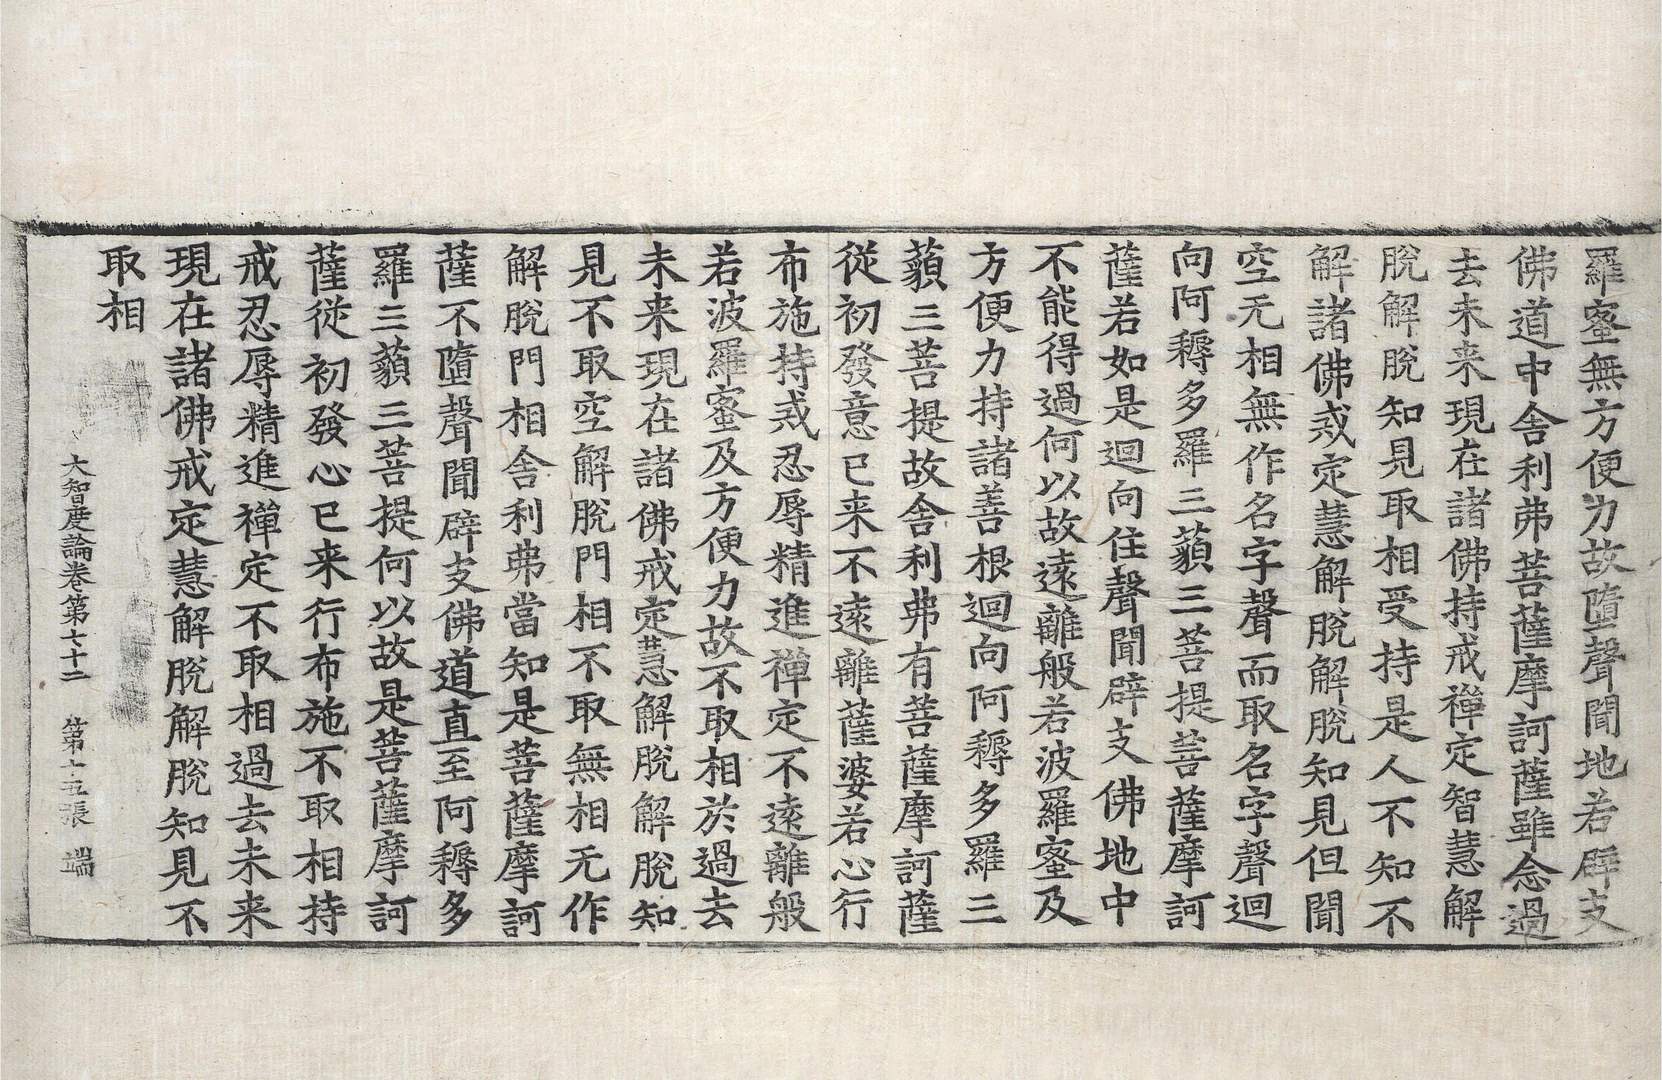 羅蜜無方便力故墮聲聞地若辟支
佛道中舍利弗菩薩摩訶薩雖念過
去未来現在諸佛持戒禪定智慧解
脫解脫知見取相受持是人不知不
解諸佛戒定慧解脫解脫知見但聞
空无相無作名字聲而取名字聲迴
向阿耨多羅三藐三菩提菩薩摩訶
薩若如是迴向住聲聞辟支佛地中
不能得過何以故遠離般若波羅蜜及
方便力持諸善根迴向阿耨多羅三
藐三菩提故舍利弗有菩薩摩訶薩
從初發意已来不遠離薩婆若心行
布施持戒忍辱精進禪定不遠離般
若波羅蜜及方便力故不取相於過去
未来現在諸佛戒定慧解脫解脫知
見不取空解脫門相不取無相无作
解脫門相舍利弗當知是菩薩摩訶
薩不墮聲聞辟支佛道直至阿耨多
羅三藐三菩提何以故是菩薩摩訶
薩從初發心已来行布施不取相持
戒忍辱精進禪定不取相過去未来
現在諸佛戒定慧解脫解脫知見不
取相
大智度論卷第七十二 第十五張 端